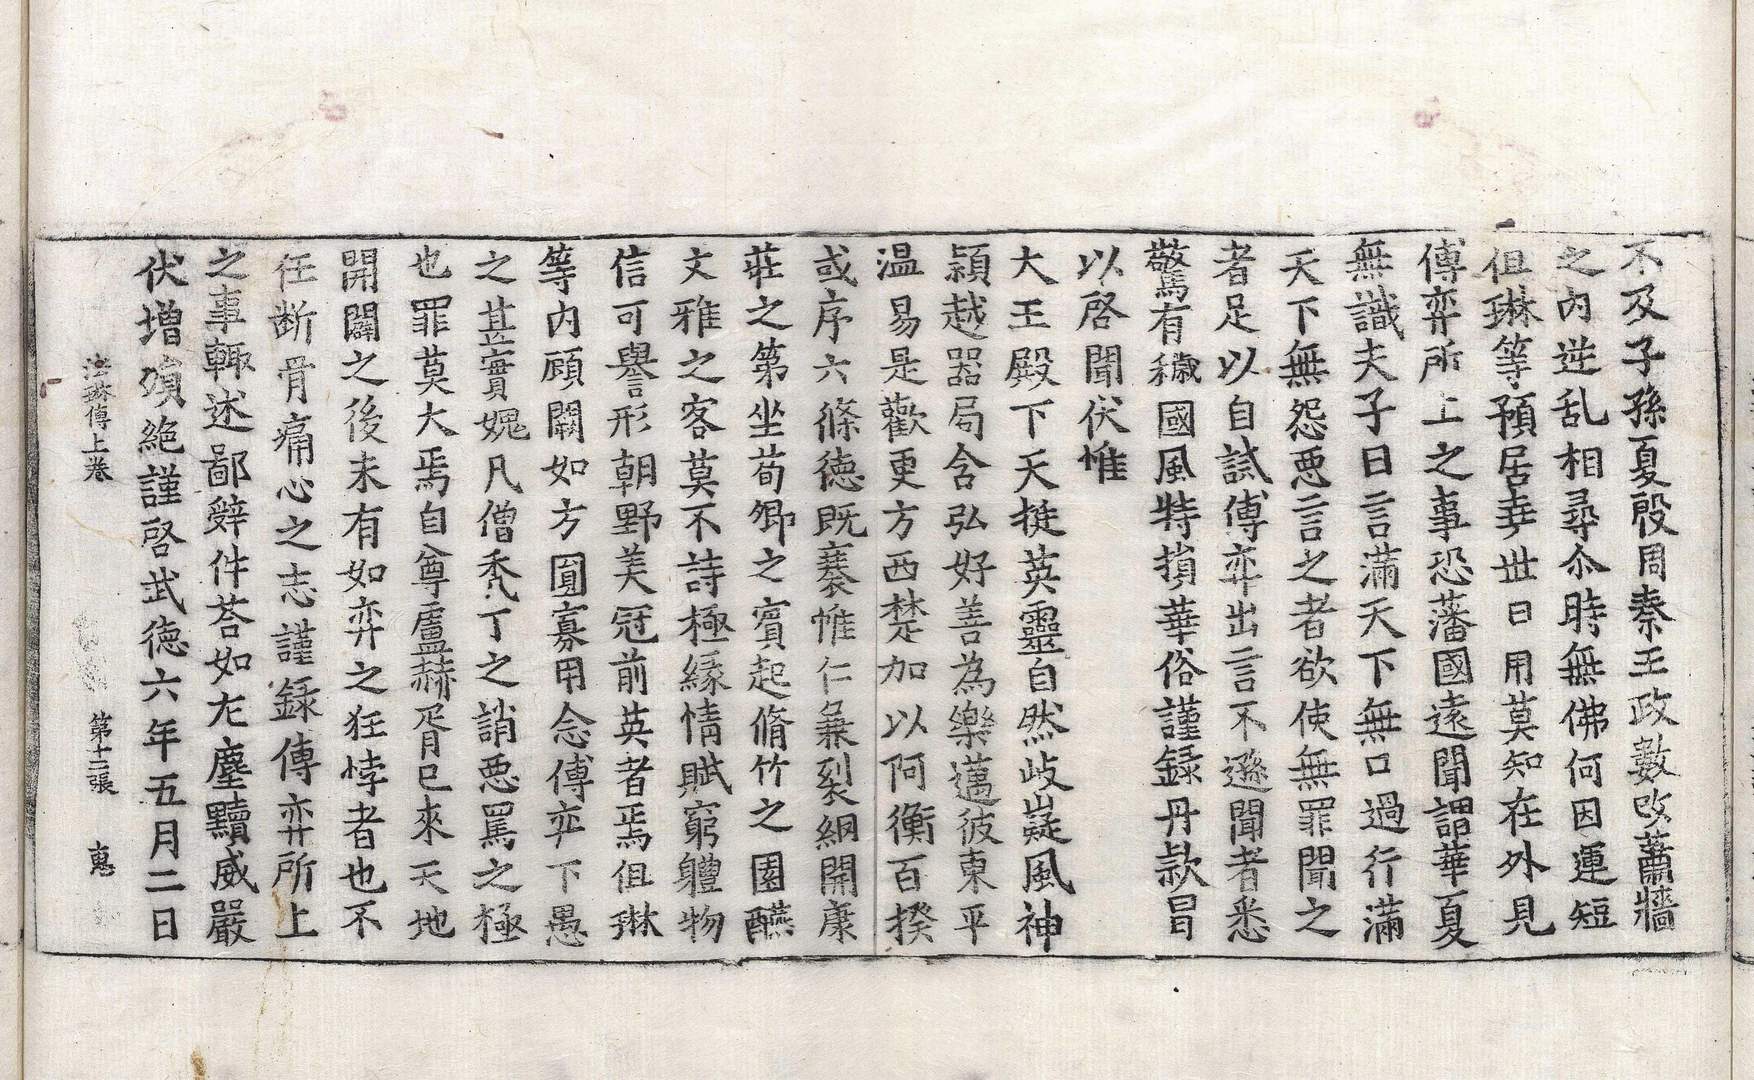 不及子孫夏殷周秦王政數改蕭牆
之内逆乱相尋尒時無佛何因運短
但琳等預居堯世日用莫知在外見
傅弈所上之事恐藩國遠聞謂華夏
無識夫子曰言滿天下無口過行滿
天下無怨悪言之者欲使無罪聞之
者足以自試傅弈出言不遜聞者悉
驚有穢國風特損華俗謹録丹款冒
以啓聞伏惟
大王殿下天挺英靈自然岐嶷風神
頴越器局含弘好善為樂邁彼東平
温易是歡更方西楚加以阿衡百揆
或序六條德既褰帷仁兼裂網開康
莊之第坐荀卿之賓起脩竹之園醼
文雅之客莫不詩極緣情賦窮軆物
信可譽形朝野美冠前英者焉但琳
等内顧闕如方圓寡用念傅弈下愚
之甚實媿凡僧秃丁之誚悪罵之極
也罪莫大焉自尊盧赫胥已來天地
開闢之後未有如弈之狂悖者也不
任斷骨痛心之志謹録傅弈所上
之事輙述鄙辤件荅如左塵黷威嚴
伏增殞絶謹啓武德六年五月二日
法琳傳上卷 第十二張 惠